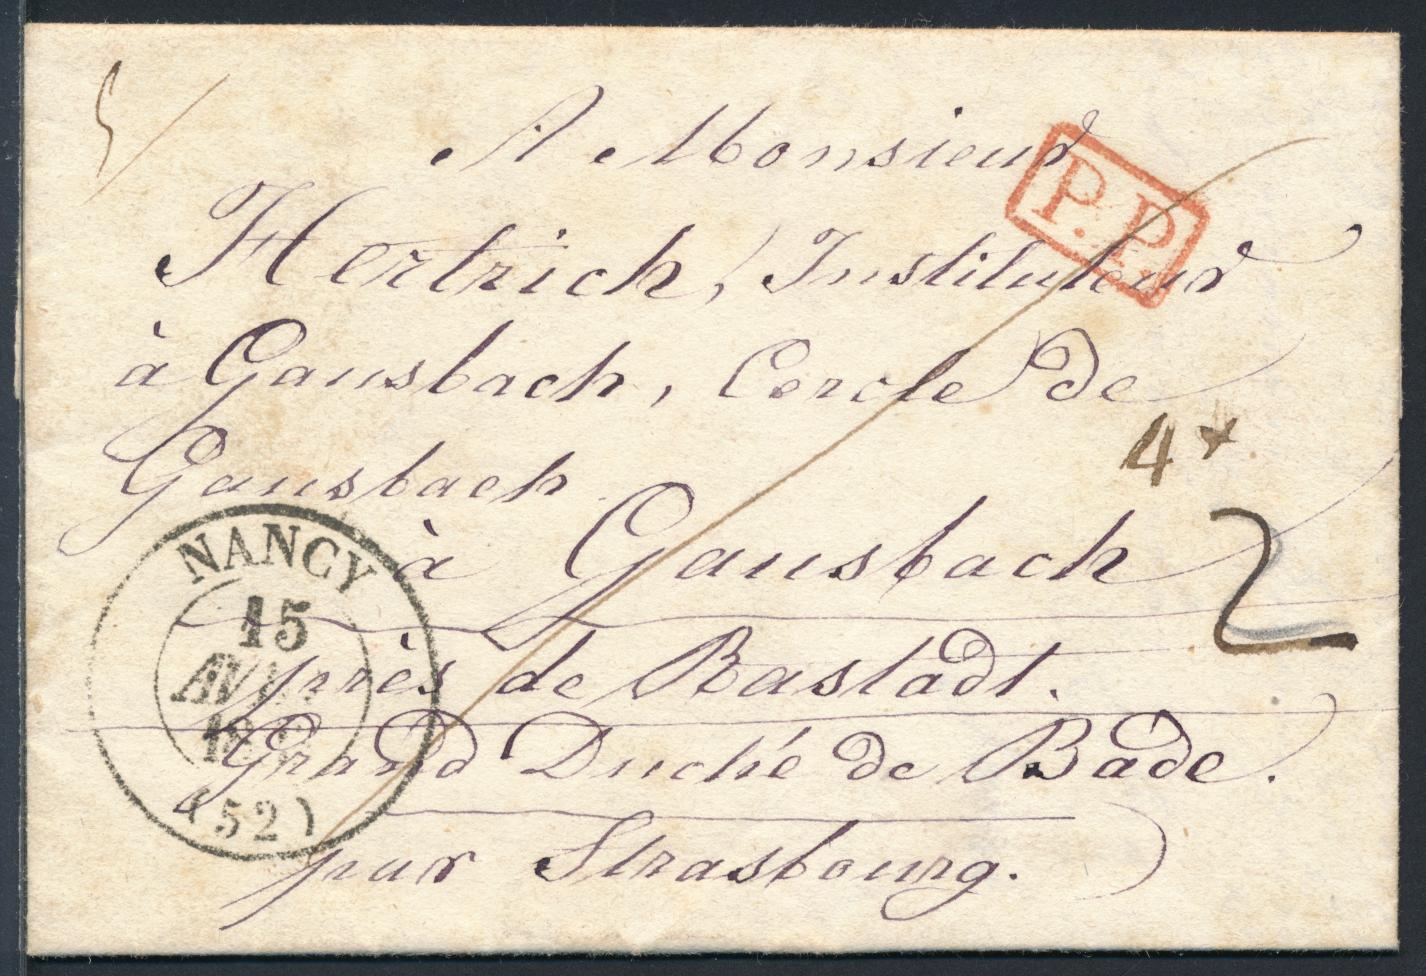 A Monsieur
P.P.
Hertrich, Instituteur
à Gausbach, Cercle de
Gausbach
4 x
à Gausbach
2
NANCY
15
AVR.
(52)
près de Rastadt.
Grand Duché de Bade.
par Strasbourg.